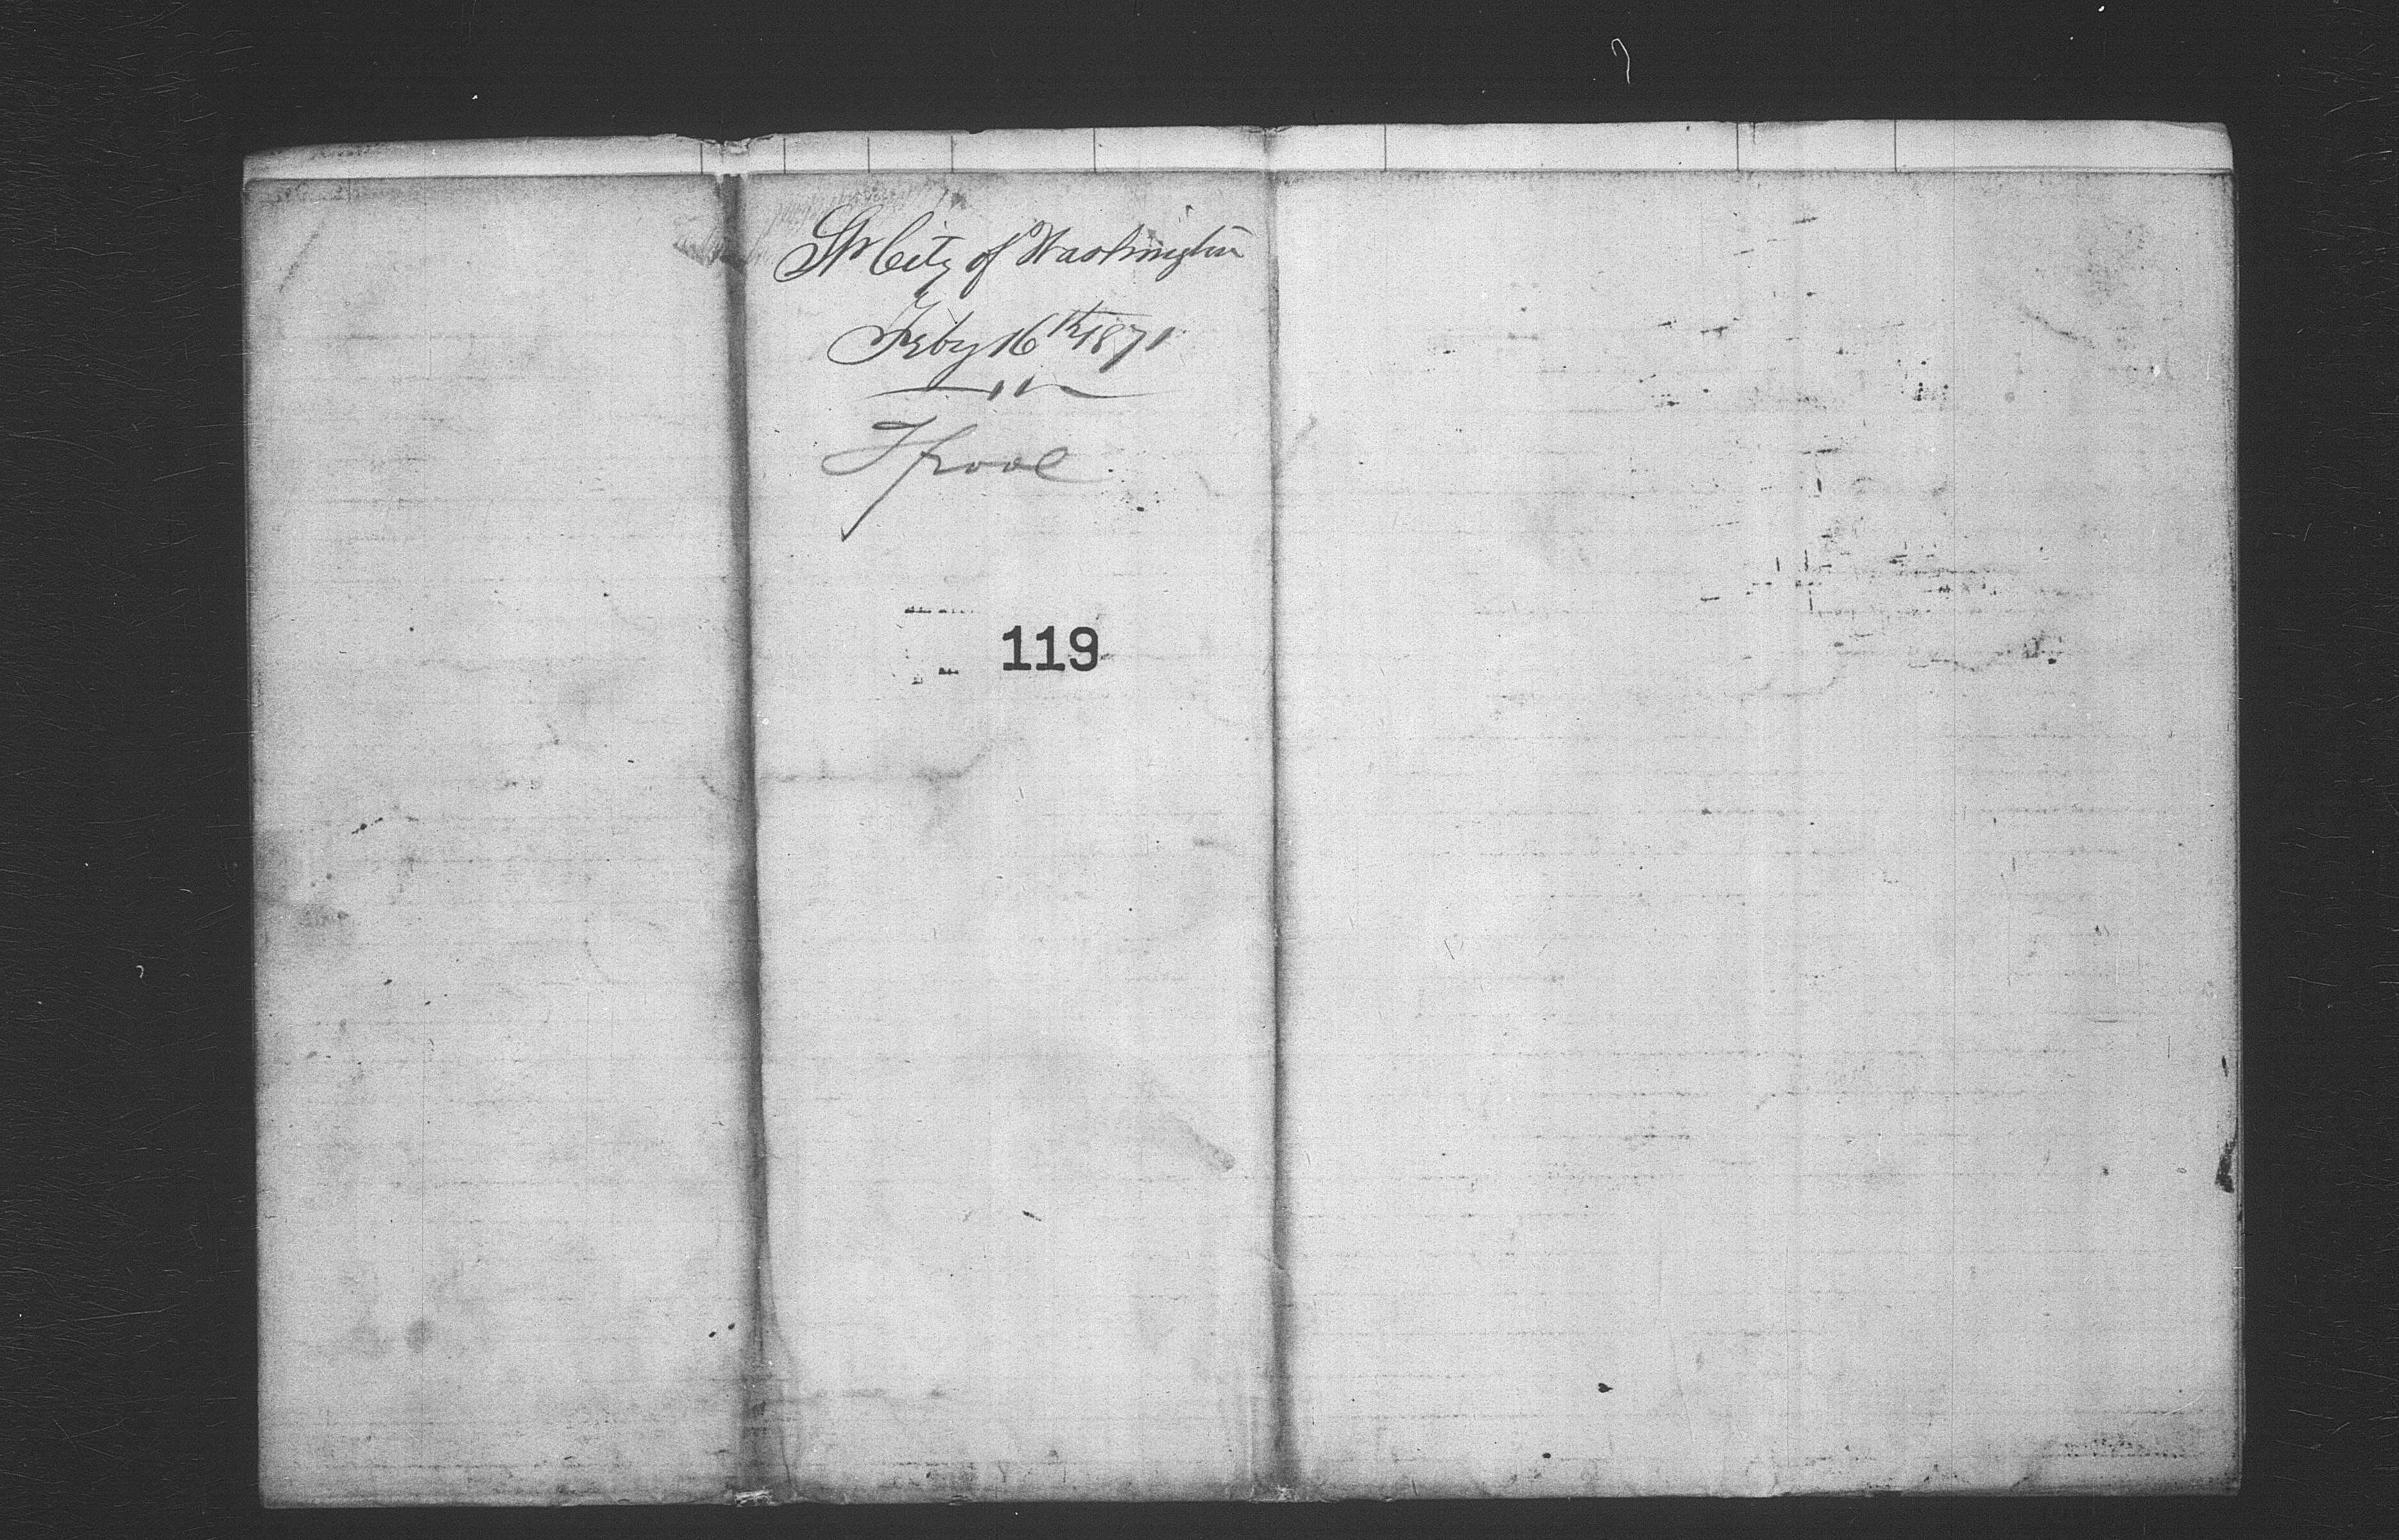 Str City of Washington
Feby 16th 1871
119